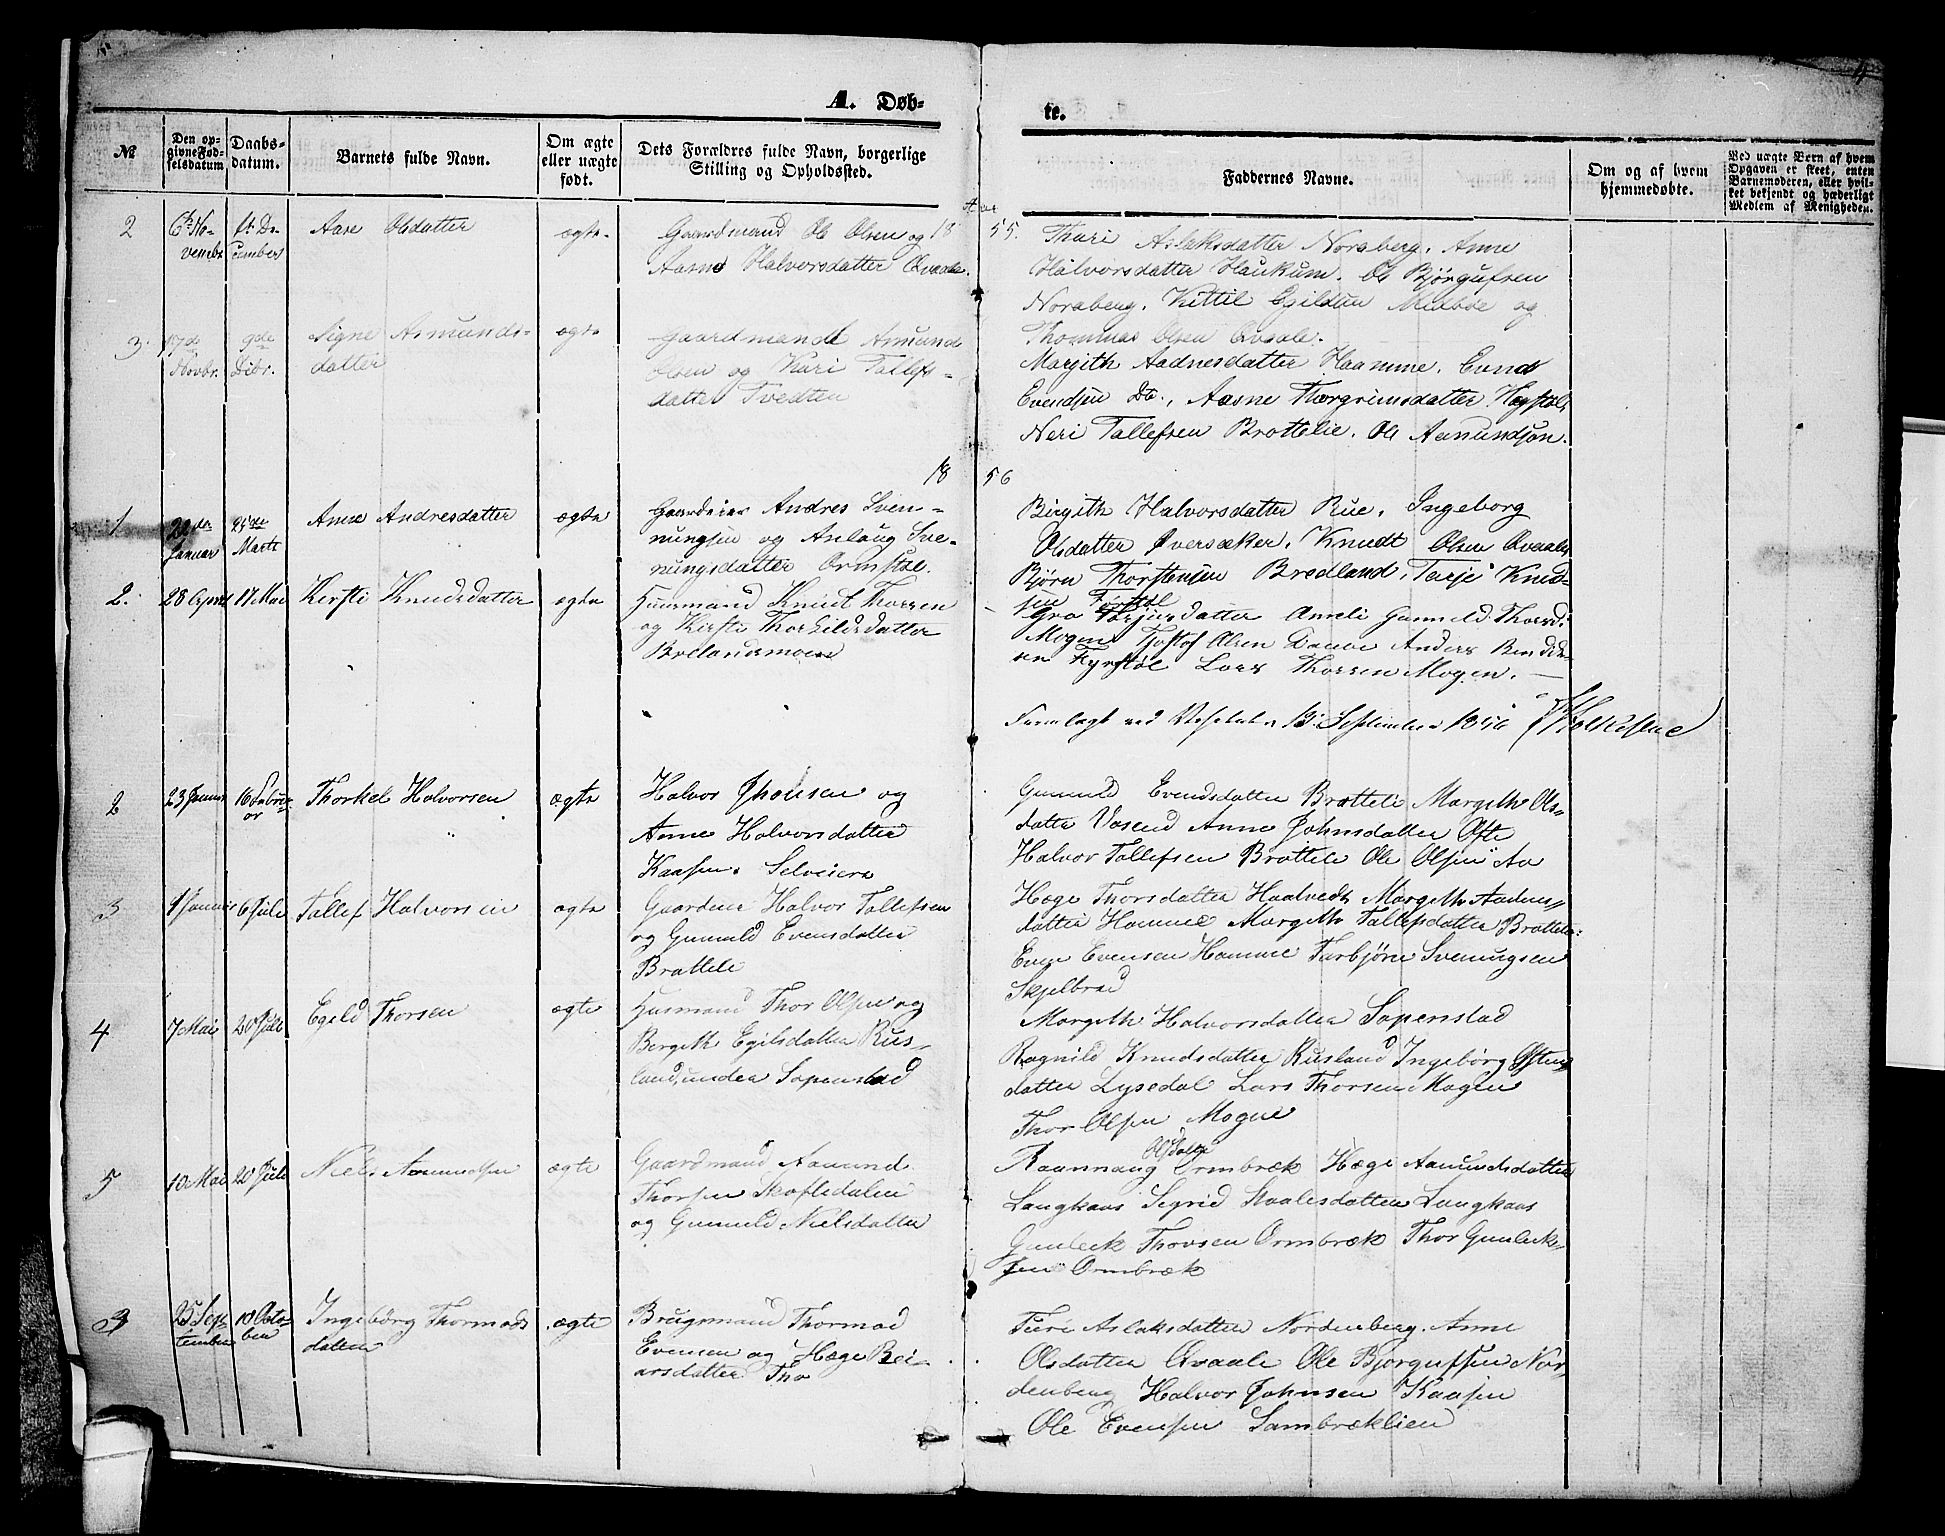 4
A. Døb-
te.
№
Den op-
givne Fød-
selsdatum
Daabs-
datum.
Barnets fulde Navn.
Om ægte
eller uægte
født.
Dets Forældres fulde Navn, borgerlige
Stilling og Opholdssted.
Faddernes Navne.
Om og af hvem
hjemmedøbte.
Ved uægte Børn af hvem
Opgaven er skeet, enten
Barnemoderen, eller hvil-
ket bekjendt og hæderligt
Medlem af Menigheden.
Aar
1855.
2
6te No-
vembr
De-
cember
Aase Olsdatter
ægte
Gaardmand Ole Olsen og
Aasne Halvorsdatter Qvaale.
Thuri Aslaksdatter Noraberg. Anne
Halvorsdatter Haukum. Ole Bjørgufsen
Noraberg. Kittil Egildsen Midbøe og
Thommas Olsen Qvaale.
3.
17de
Novbr.
9de
Dcbr.
Signe Asmunds-
datter
ægte
Gaardmand Asmund
Olsen og Kari Tallefs-
datter Tvedten
Margith Aadnesdatter Haamme. Evend
Evendsen Do., Aasne Thorgrimsdatter Høgstøl,
Neri Tallefsen Brottelie. Ole Asmundsøn.
1856
1
Januar
25de
Marts
Anne Andresdatter
ægte
Gaardeier Andres Sven-
nungsen og Aslaug Sve-
nungsdatter Ormstøl.
Birgith Halvorsdatter Rue. Ingeborg
Olsdatter Oversaker. Knudt Olsen Qvaale,
Bjørn Thorstensen Bredland. Tarje Knud-
sen Førstøl
2.
28 April
17 Mai
Kirsti Knudsdatter
ægte
Huusmand Knut Thorsen
og Kirsti Thorkildsdatter
Brelandsmoen
Gro Tarjeisdatter Ameli Gunnild Thorsd:
Mogen Tjostof Olsen Daave Anders Bendik-
sen Fyrstøl Lars Thorsen Mogen.
Fremlagt ved Visitats 13 September 1856
2
23 Januar
16 Febru-
ar
Thorkel Halvorsen
ægte
Halvor Jhonsen og
Anne Halvorsdatter
Kaasen. Selveier
Gunnild Evendsdatter Brotteli Margith Ols-
datter Vasend Anne Johnsdatter Ofte
Halvor Tallefsen Brottele Ole Olsen Aa
3
1 Januar
6 Juli
Tallef Halvorsen
ægte
Gaardeier Halvor Tallefsen
og Gunnild Evensdatter
Brottele
Hæge Thorsdatter Haatvedt Margith Aadnes-
datter Hommee Margith Tallefsdatter Brottele:
Even Evensen Hommee Torbjørn Svenungsen
Skjelbred
4
7 Mai
20 Juli
Egeld Thorsen
ægte
Husmand Thor Olsen og
Bergith Egilsdatter Rus-
land, under Sopenstad
Margith Halvorsdatter Sopenstad
Ragnild Knudsdatter Rusland Ingebørg Østens
datter Lysedal Lars Thorsen Mogen
Thor Olsen Mogen
5
10 Mai
20 Juli
Niels Aamundsen
ægte
Gaardmand Aamund
Thorsen Skoftedalen
og Gunnuld Nielsdatter
Raannaug Olsdatter Ormbræk Hæge Aamundsdatter
Langkaas Sigrid Staalesdatter Langkaas
Gunleck Thovsen Ormbræk Thor Gunleck-
sen Ormbræk
3
25 Sep-
tember
18 Octo-
ber
Ingebørg Thormods
datter
ægte
Brugsmand Thormod
Evensen og Hæge Rei-
arsdatter Tho
Turi Aslaksdatter Nordenberg. Anne
Olsdatter Qvaale Ole Bjorgufsen Nor-
denberg Halvor Johnsen Kaasen
Ole Evensen Sambræklien